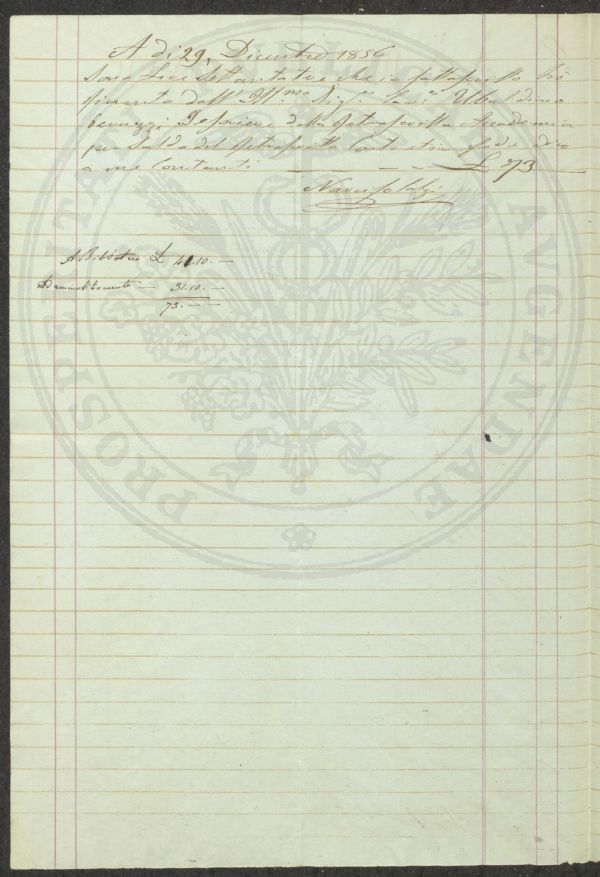 A di 29, Dicembre 1856
Sono Lire Settantatre che io sottoscritto ho
ricevuto dall' Ill.mo Sig.re Cav.e Ubaldino
Peruzzi della retroscritta Accademia
per Saldo del retroscritto Conto e in fede dico
a me Contanti £ 73
Narciso
£ 41.10.—
31.10.—
73.—
PROSPERITATI AUGENDAE